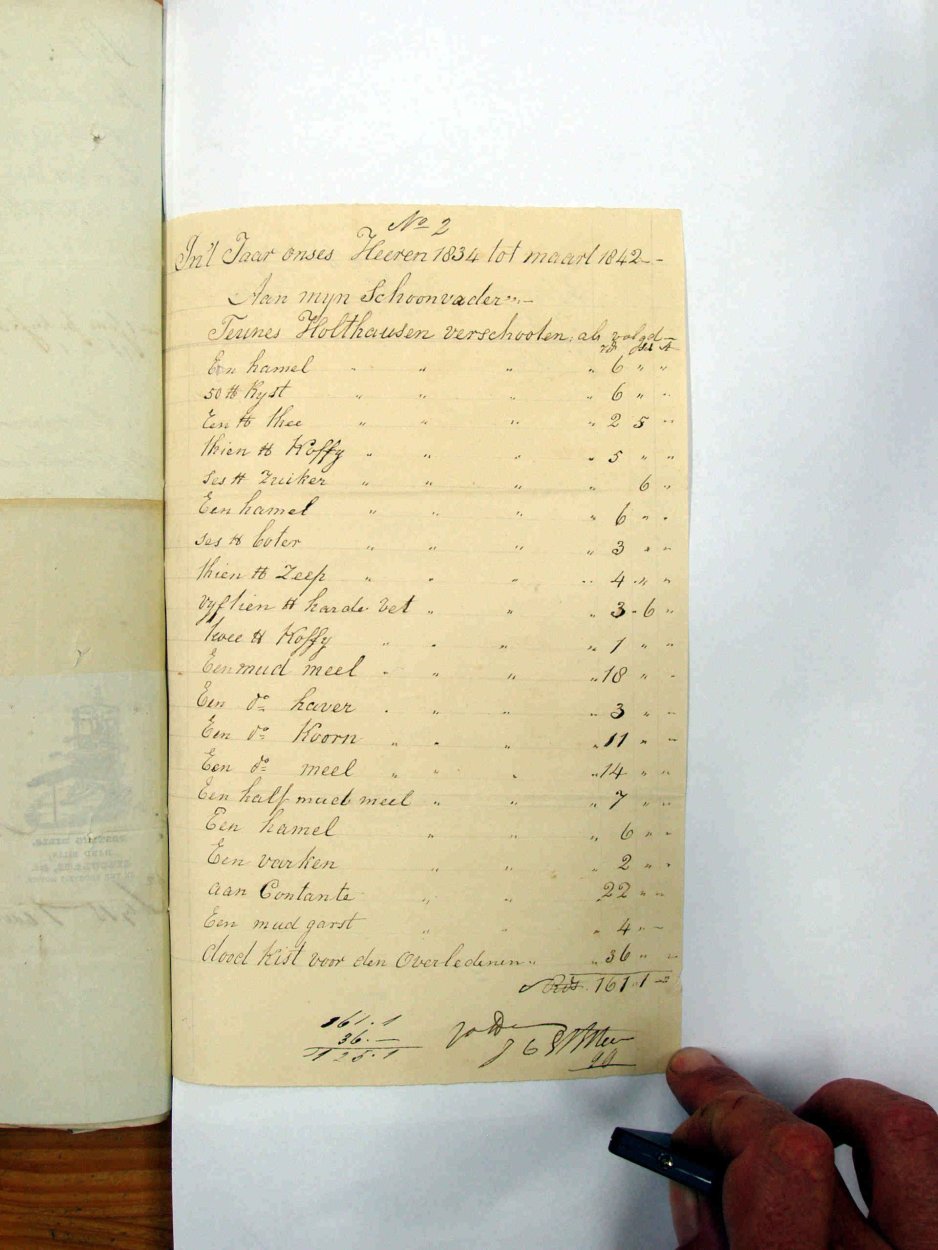 No 2
In't Jaar onses Heeren 1834 tot maart 1842 -
Aan myn Schoonvader „ -
Teunes Holthausen verschooten, als volgd -
Een hamel „ „ „ „ 6 „ „
50 ℔ Ryst „ „ „ „ 6 „ „
Een ℔ thee „ „ „ „ 2 5 „
thien ℔ Koffy „ „ „ „ 5 „ „
ses ℔ Zuiker „ „ „ „ 6 „
Een hamel „ „ „ „ 6 „ „
ses ℔ boter „ „ „ „ 3 „ „
thien ℔ Zeep „ „ „ „ 4 „ „
vyftien ℔ harde vet „ „ „ 3 - 6 „
twee ℔ Koffy „ „ „ „ 1 „ „
Een mud meel „ „ „ „ 18 „ „
Een do haver „ „ „ „ 3 „ „
Een do Koorn „ „ „ „ 11 „ „
Een do meel „ „ „ „ 14 „ „
Een half mud meel „ „ „ 7 „ „
Een hamel „ „ „ 6 „ „
Een varken „ „ 2 „ „
aan Contante „ „ 22 „ „
Een mud garst „ „ „ 4 „ -
dood Kist voor den Overledenen „ „ 36 „ „
Rds. 161 „ 1 -
161 . 1
36 . -
125 . 1